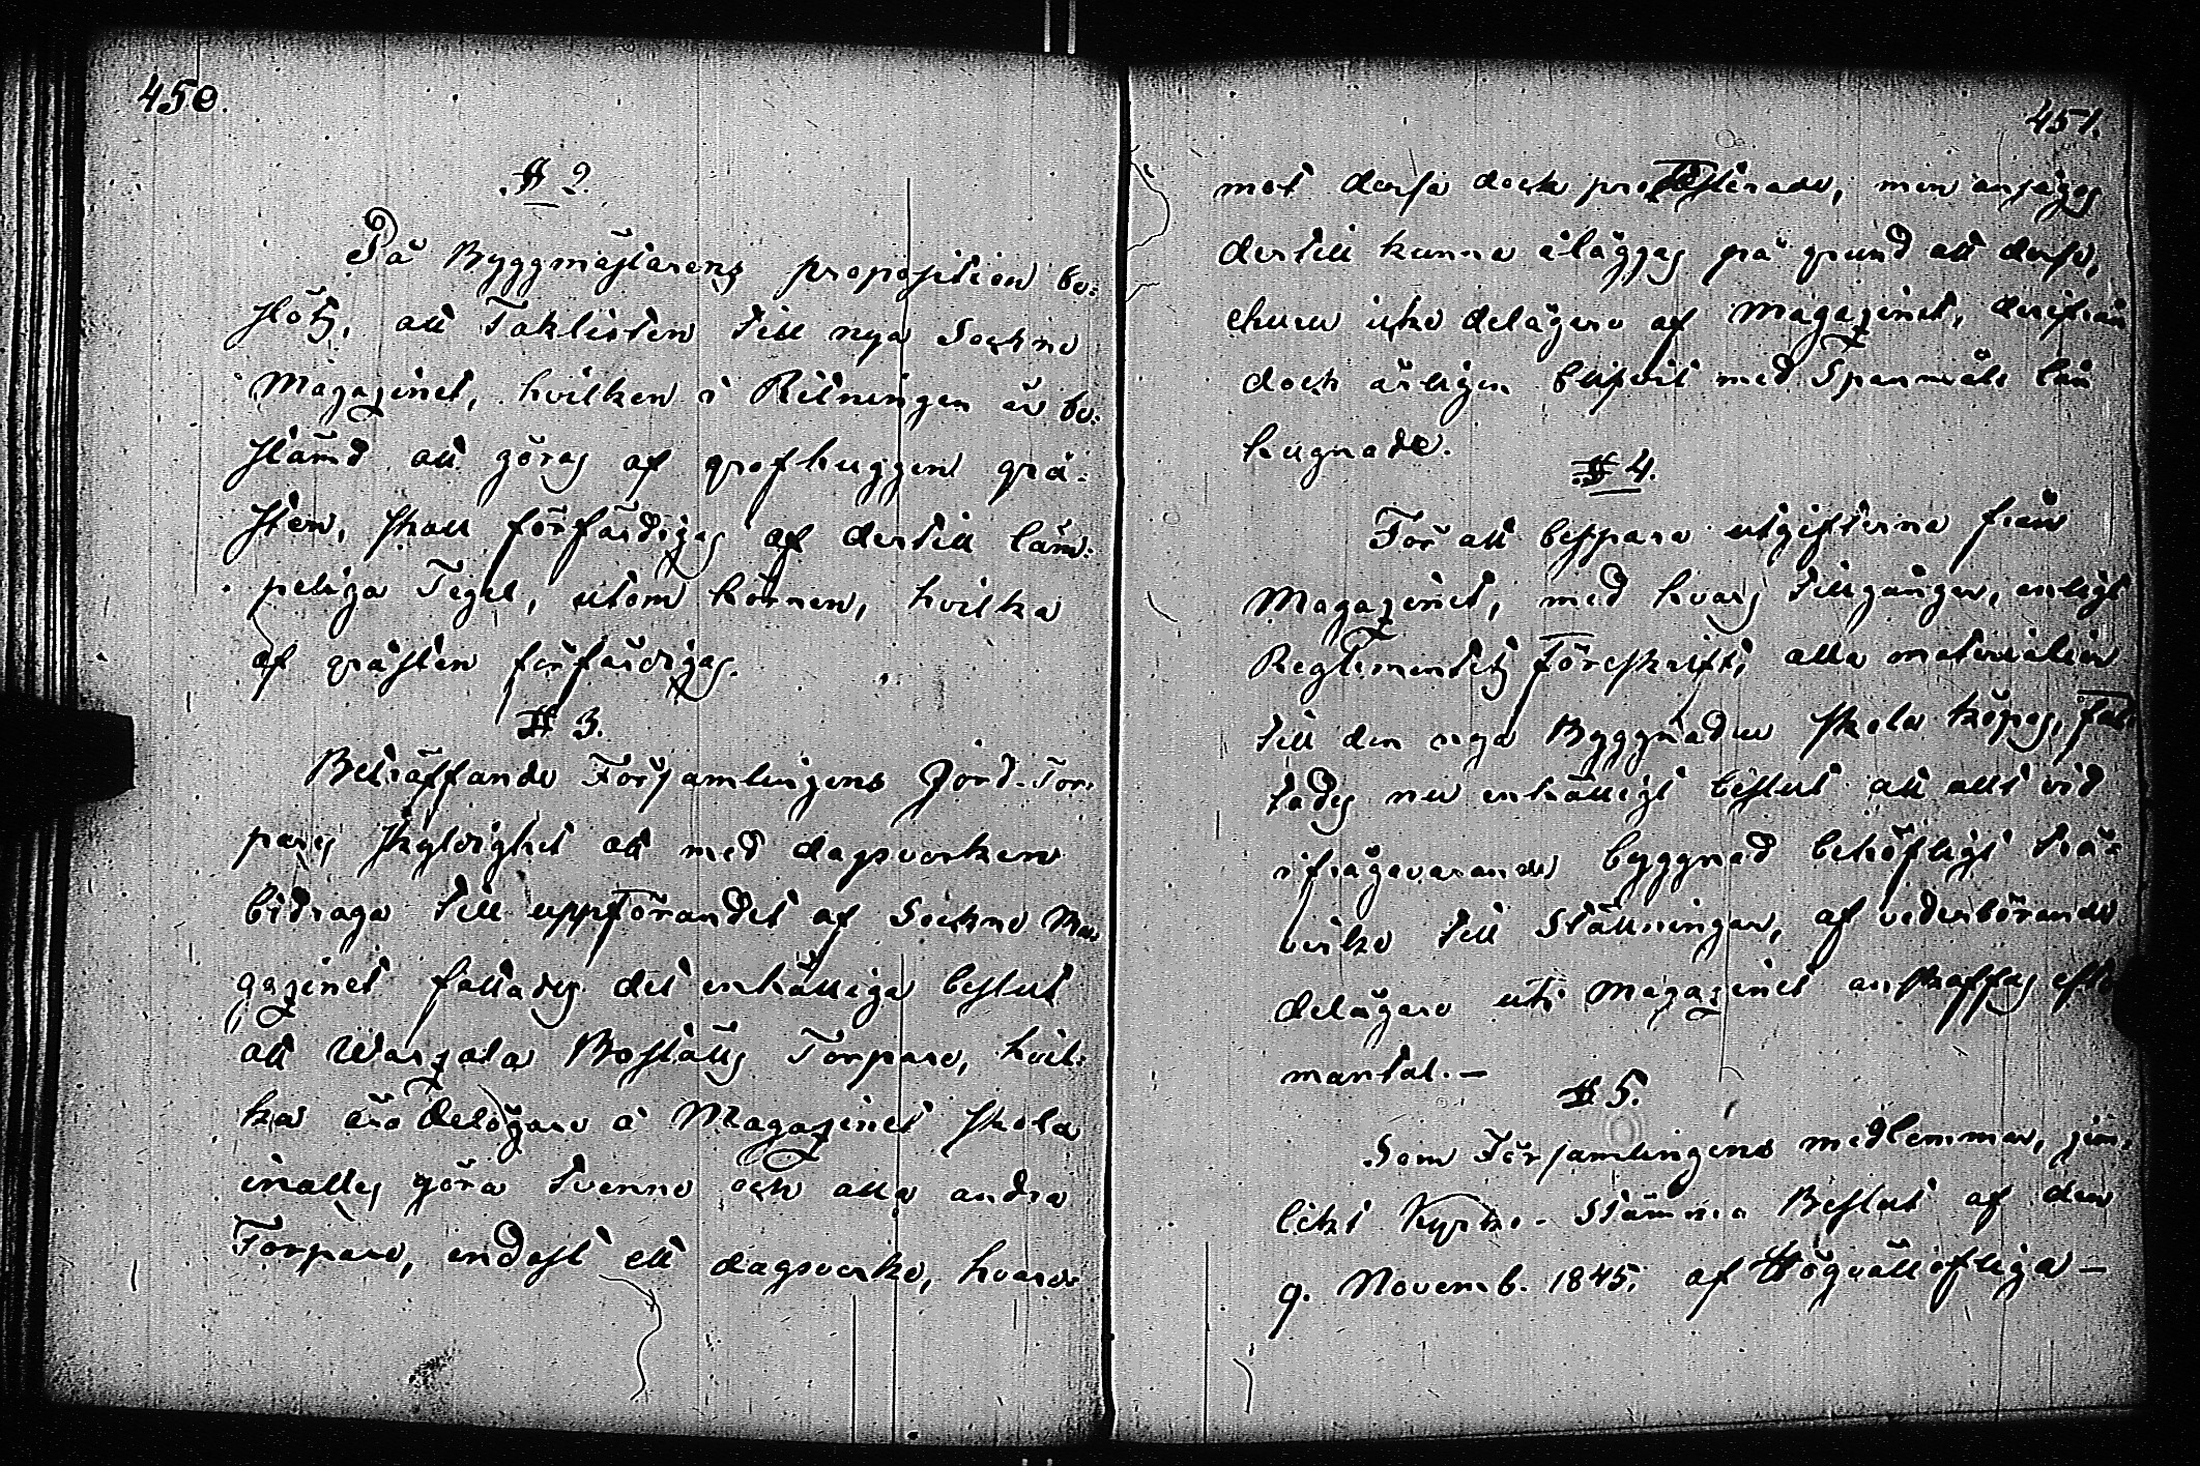 450.
§ 2.
På Byggmästarens proposition be-
slöts, att Taklisten till nya Sockne
Magazinet, hvilken i Ritningen är be-
stämd att göras af grofhuggen grå-
sten, skall förfärdigas af dertill läm-
peliga Tegel, utom hörnen, hvilka
af gråsten förfärdigas.
§ 3.
Beträffande Församlingens Jord-Tor-
pares skyldighet att med dagsverken
bidraga till uppförandet af Sockne Ma-
gazinet fattades det enhälliga beslut
att Boställs Torpare, hvil-
ka äro delägare i Magazinet skola
inalles göra tvenne och alla andra
Torpare, endast ett dagsverke, hvar-
451.
mot desse dock protesterade, men ansågos
dertill kunna åläggas på grund att desse,
ehuru icke delägare af Magazinet, derifrån
dock årligen blifvit med Spanmåls lån
hugnade.
§ 4.
För att bespara utgifterna från
Magazinet, med hvars tillgångar, enligt
Reglementets föreskrift, alla materialier
till den nya Byggnaden skola köpas, fat-
tades nu enhälligt beslut att allt vid
ifrågavarande byggnad behöfligt trä-
virke till Ställningar, af vederbörande
delägare uti Magazinet anskaffas efter
mantal. —
§ 5.
Som Församlingens medlemmar, jem-
likt Kyrko-Stämma Beslut af den
9. Novemb. 1845, af Högvällofliga —